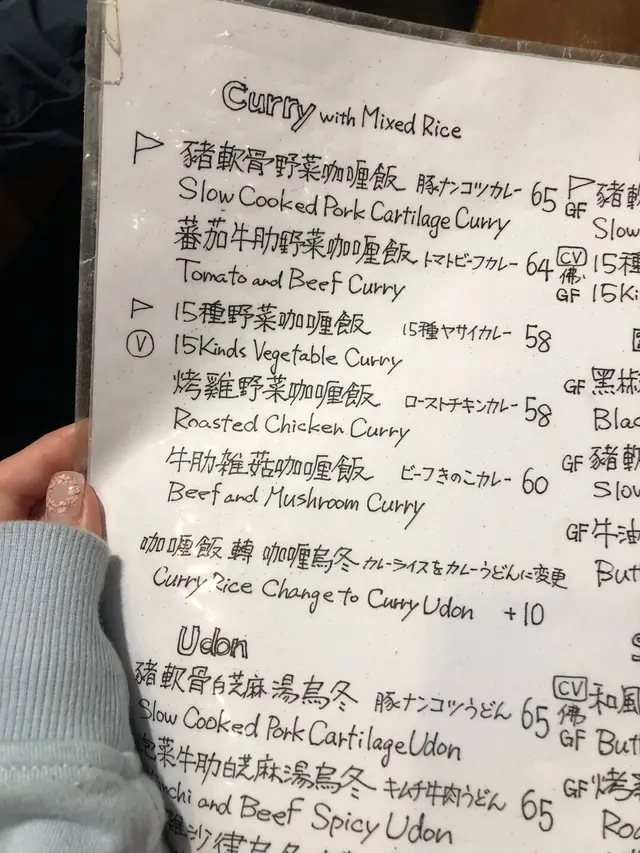 Curry with Mixed Rice
豬軟骨野菜咖喱飯 豚ナンコツカレー 65
Slow Cooked Pork Cartilage Curry
蕃茄牛肋野菜咖喱飯 トマトビーフカレー 64
Tomato and Beef Curry
15種野菜咖喱飯 15種ヤサイカレー 58
V 15Kinds Vegetable Curry
烤雞野菜咖喱飯 ローストチキンカレー 58
Roasted Chicken Curry
牛肋雑菇咖喱飯 ビーフきのこカレー 60
Beef and Mushroom Curry
咖喱飯 轉 咖喱烏冬 カレーライスをカレーうどんに変更
Curry Rice Change to Curry Udon +10
Udon
豬軟骨白芝麻湯烏冬 豚ナンコツうどん 65
Slow Cooked Pork Cartilage Udon
泡菜牛肋白芝麻湯烏冬 キムチ牛肉うどん 65
and Beef Spicy Udon
豬軟
GF Slow
CV 佛 15種
GF 15Ki
GF 黑椒
Blac
GF 豬軟
Slow
GF 牛油
But
CV 佛 和風
GF But
GF 烤
Roa